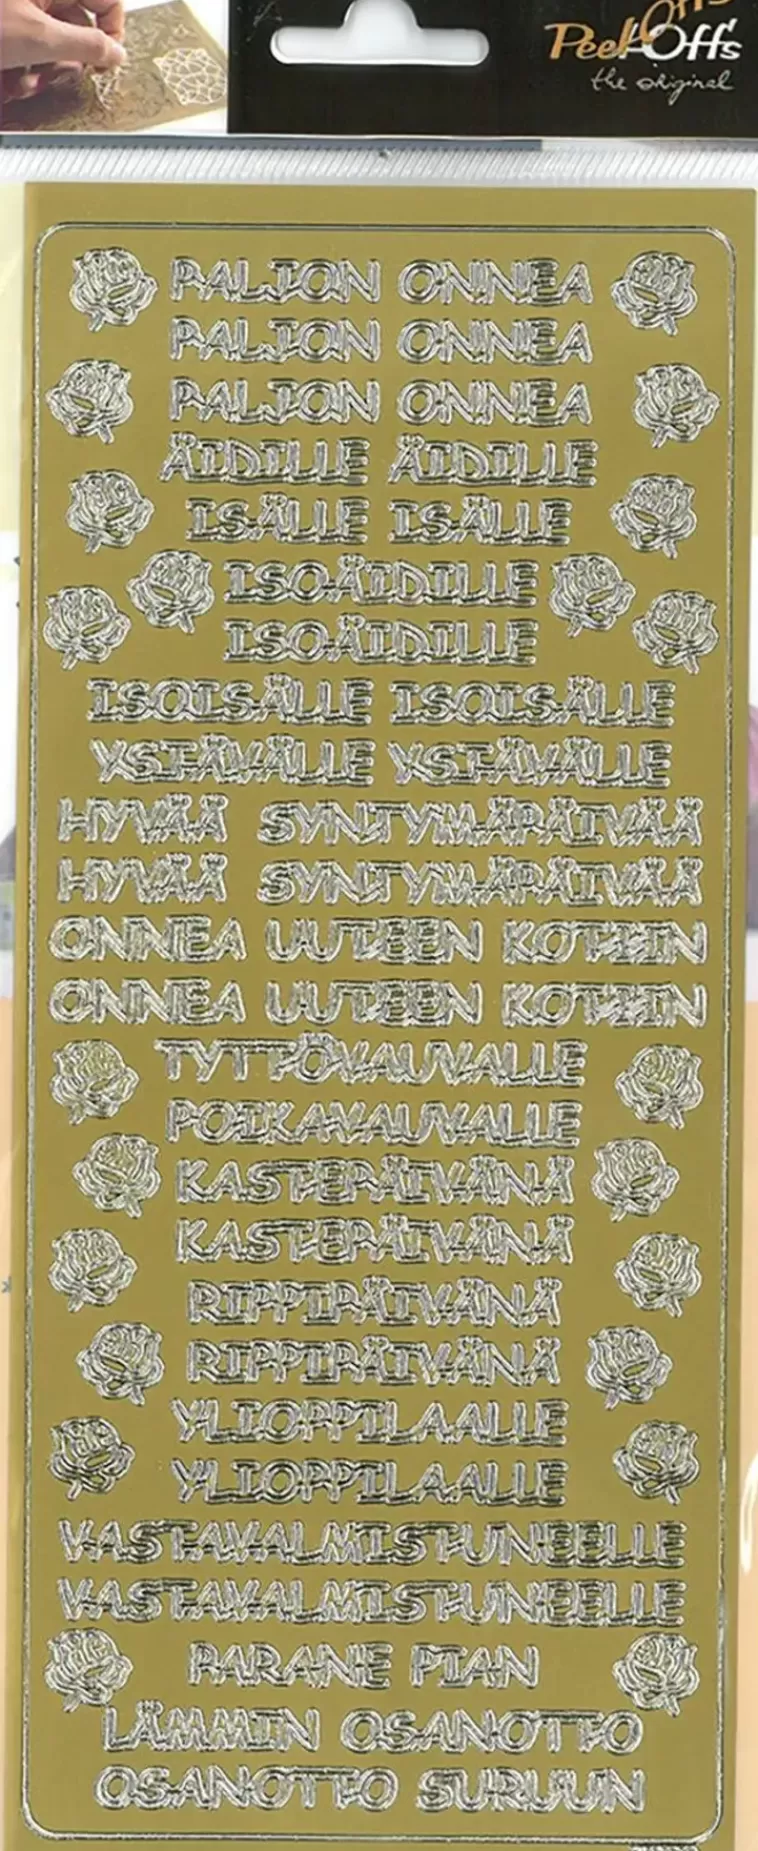 Offs
Peel Offs
the original
PALJON ONNEA
PALJON ONNEA
PALJON ONNEA
ÄIDILLE ÄIDILLE
ISÄLLE ISÄLLE
ISOÄIDILLE
ISOÄIDILLE
ISOISÄLLE ISOISÄLLE
YSTÄVÄLLE YSTÄVÄLLE
HYVÄÄ SYNTYMÄPÄIVÄÄ
HYVÄÄ SYNTYMÄPÄIVÄÄ
ONNEA UUTEEN KOTIIN
ONNEA UUTEEN KOTIIN
TYTTÖVAUVALLE
POIKAVAUVALLE
KASTEPÄIVÄNÄ
KASTEPÄIVÄNÄ
RIPPIPÄIVÄNÄ
RIPPIPÄIVÄNÄ
YLIOPPILAALLE
YLIOPPILAALLE
VASTAVALMISTUNEELLE
VASTAVALMISTUNEELLE
PARANE PIAN
LÄMMIN OSANOTTO
OSANOTTO SURUUN